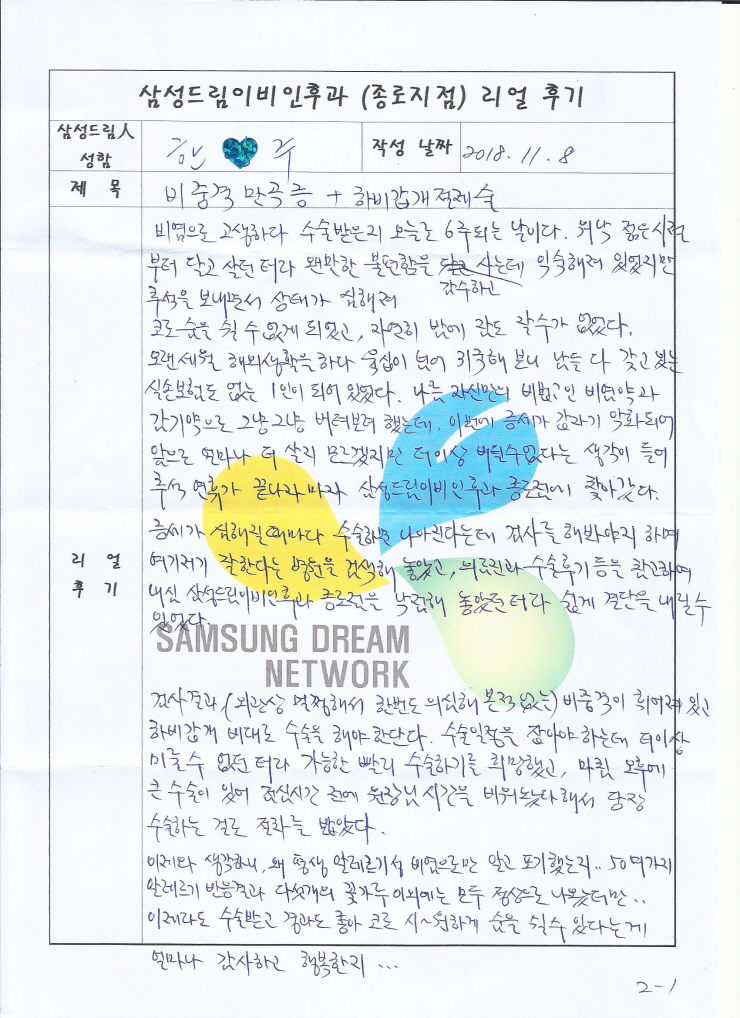 삼성드림이비인후과 (종로지점) 리얼 후기
삼성드림人
성함
한 주
작성 날짜
2018. 11. 8
제 목
비중격 만곡증 + 하비갑개절제술
비염으로 고생하다 수술받은지 오늘로 6주되는 날이다. 워낙 젊은시절
부터 달고 살던 터라 왠만한 불편함을 사는데 익숙해져 있었지만
감수하고
추석을 보내면서 상태가 심해져
코로 숨을 쉴 수 없게 되었고, 자연히 밤에 잠도 잘수가 없었다.
오랜세월 해외생활을 하다 육십이 넘어 귀국해 보니 남들 다 갖고 있는
실손보험도 없는 1인이 되어 있었다. 나름 자신만의 비법인 비염약과
감기약으로 그냥그냥 버텨보려 했는데, 이번에 증세가 갑자기 악화되어
앞으로 얼마나 더 살지 모르겠지만 더이상 버틸수없다는 생각이 들어
추석 연휴가 끝나자 마자 삼성드림이비인후과 종로점에 찾아갔다.
증세가 심해질때마다 수술하면 나아진다는데 검사를 해봐야지 하며
여기저기 잘한다는 병원을 검색해 놓았고, 의료진과 수술후기 등을 참고하여
내심 삼성드림이비인후과 종로점을 낙점해 놓았던 터라 쉽게 결단을 내릴수
있었다.
리 얼
후 기
SAMSUNG DREAM
NETWORK
검사결과, (외관상 멀쩡해서 한번도 의심해 본적 없는) 비중격이 휘어져 있고
하비갑개 비대로 수술을 해야 한단다. 수술일정을 잡아야 하는데 더이상
미룰수 없던 터라 가능한 빨리 수술하기를 희망했고, 마침 오후에
큰 수술이 있어 점심시간 전에 원장님 시간을 비워놓았다해서 당장
수술하는 걸로 절차를 밟았다.
이제와 생각하니, 왜 평생 알레르기성 비염으로만 알고 포기했는지.. 50여가지
알레르기 반응결과 다섯개의 꽃가루 이외에는 모두 정상으로 나왔더만..
이제라도 수술받고 경과도 좋아 코로 시~원하게 숨을 쉴수 있다는게
얼마나 감사하고 행복한지 ...
2-1